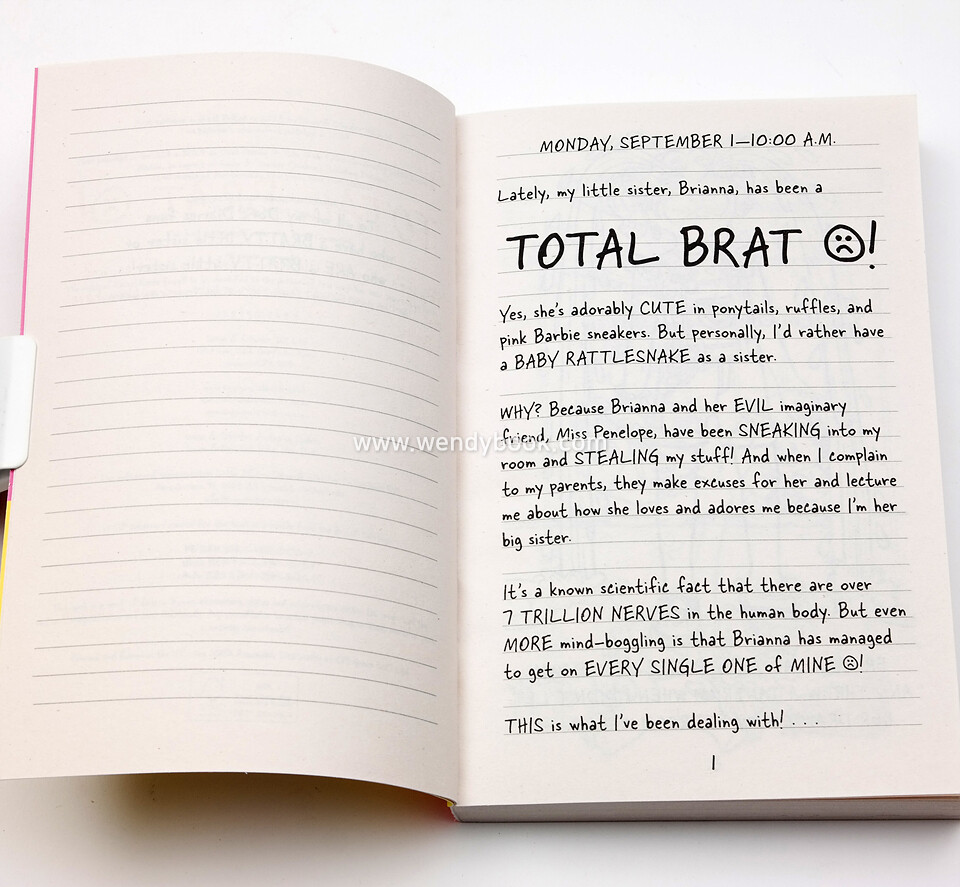 MONDAY, SEPTEMBER 1—10:00 A.M.
Lately, my little sister, Brianna, has been a
TOTAL BRAT ☹!
Yes, she's adorably CUTE in ponytails, ruffles, and
pink Barbie sneakers. But personally, I'd rather have
a BABY RATTLESNAKE as a sister.
WHY? Because Brianna and her EVIL imaginary
friend, Miss Penelope, have been SNEAKING into my
www.wendybook.com
room and STEALING my stuff! And when I complain
to my parents, they make excuses for her and lecture
me about how she loves and adores me because I'm her
big sister.
It's a known scientific fact that there are over
7 TRILLION NERVES in the human body. But even
MORE mind-boggling is that Brianna has managed
to get on EVERY SINGLE ONE of MINE ☹!
THIS is what I've been dealing with! . . .
1